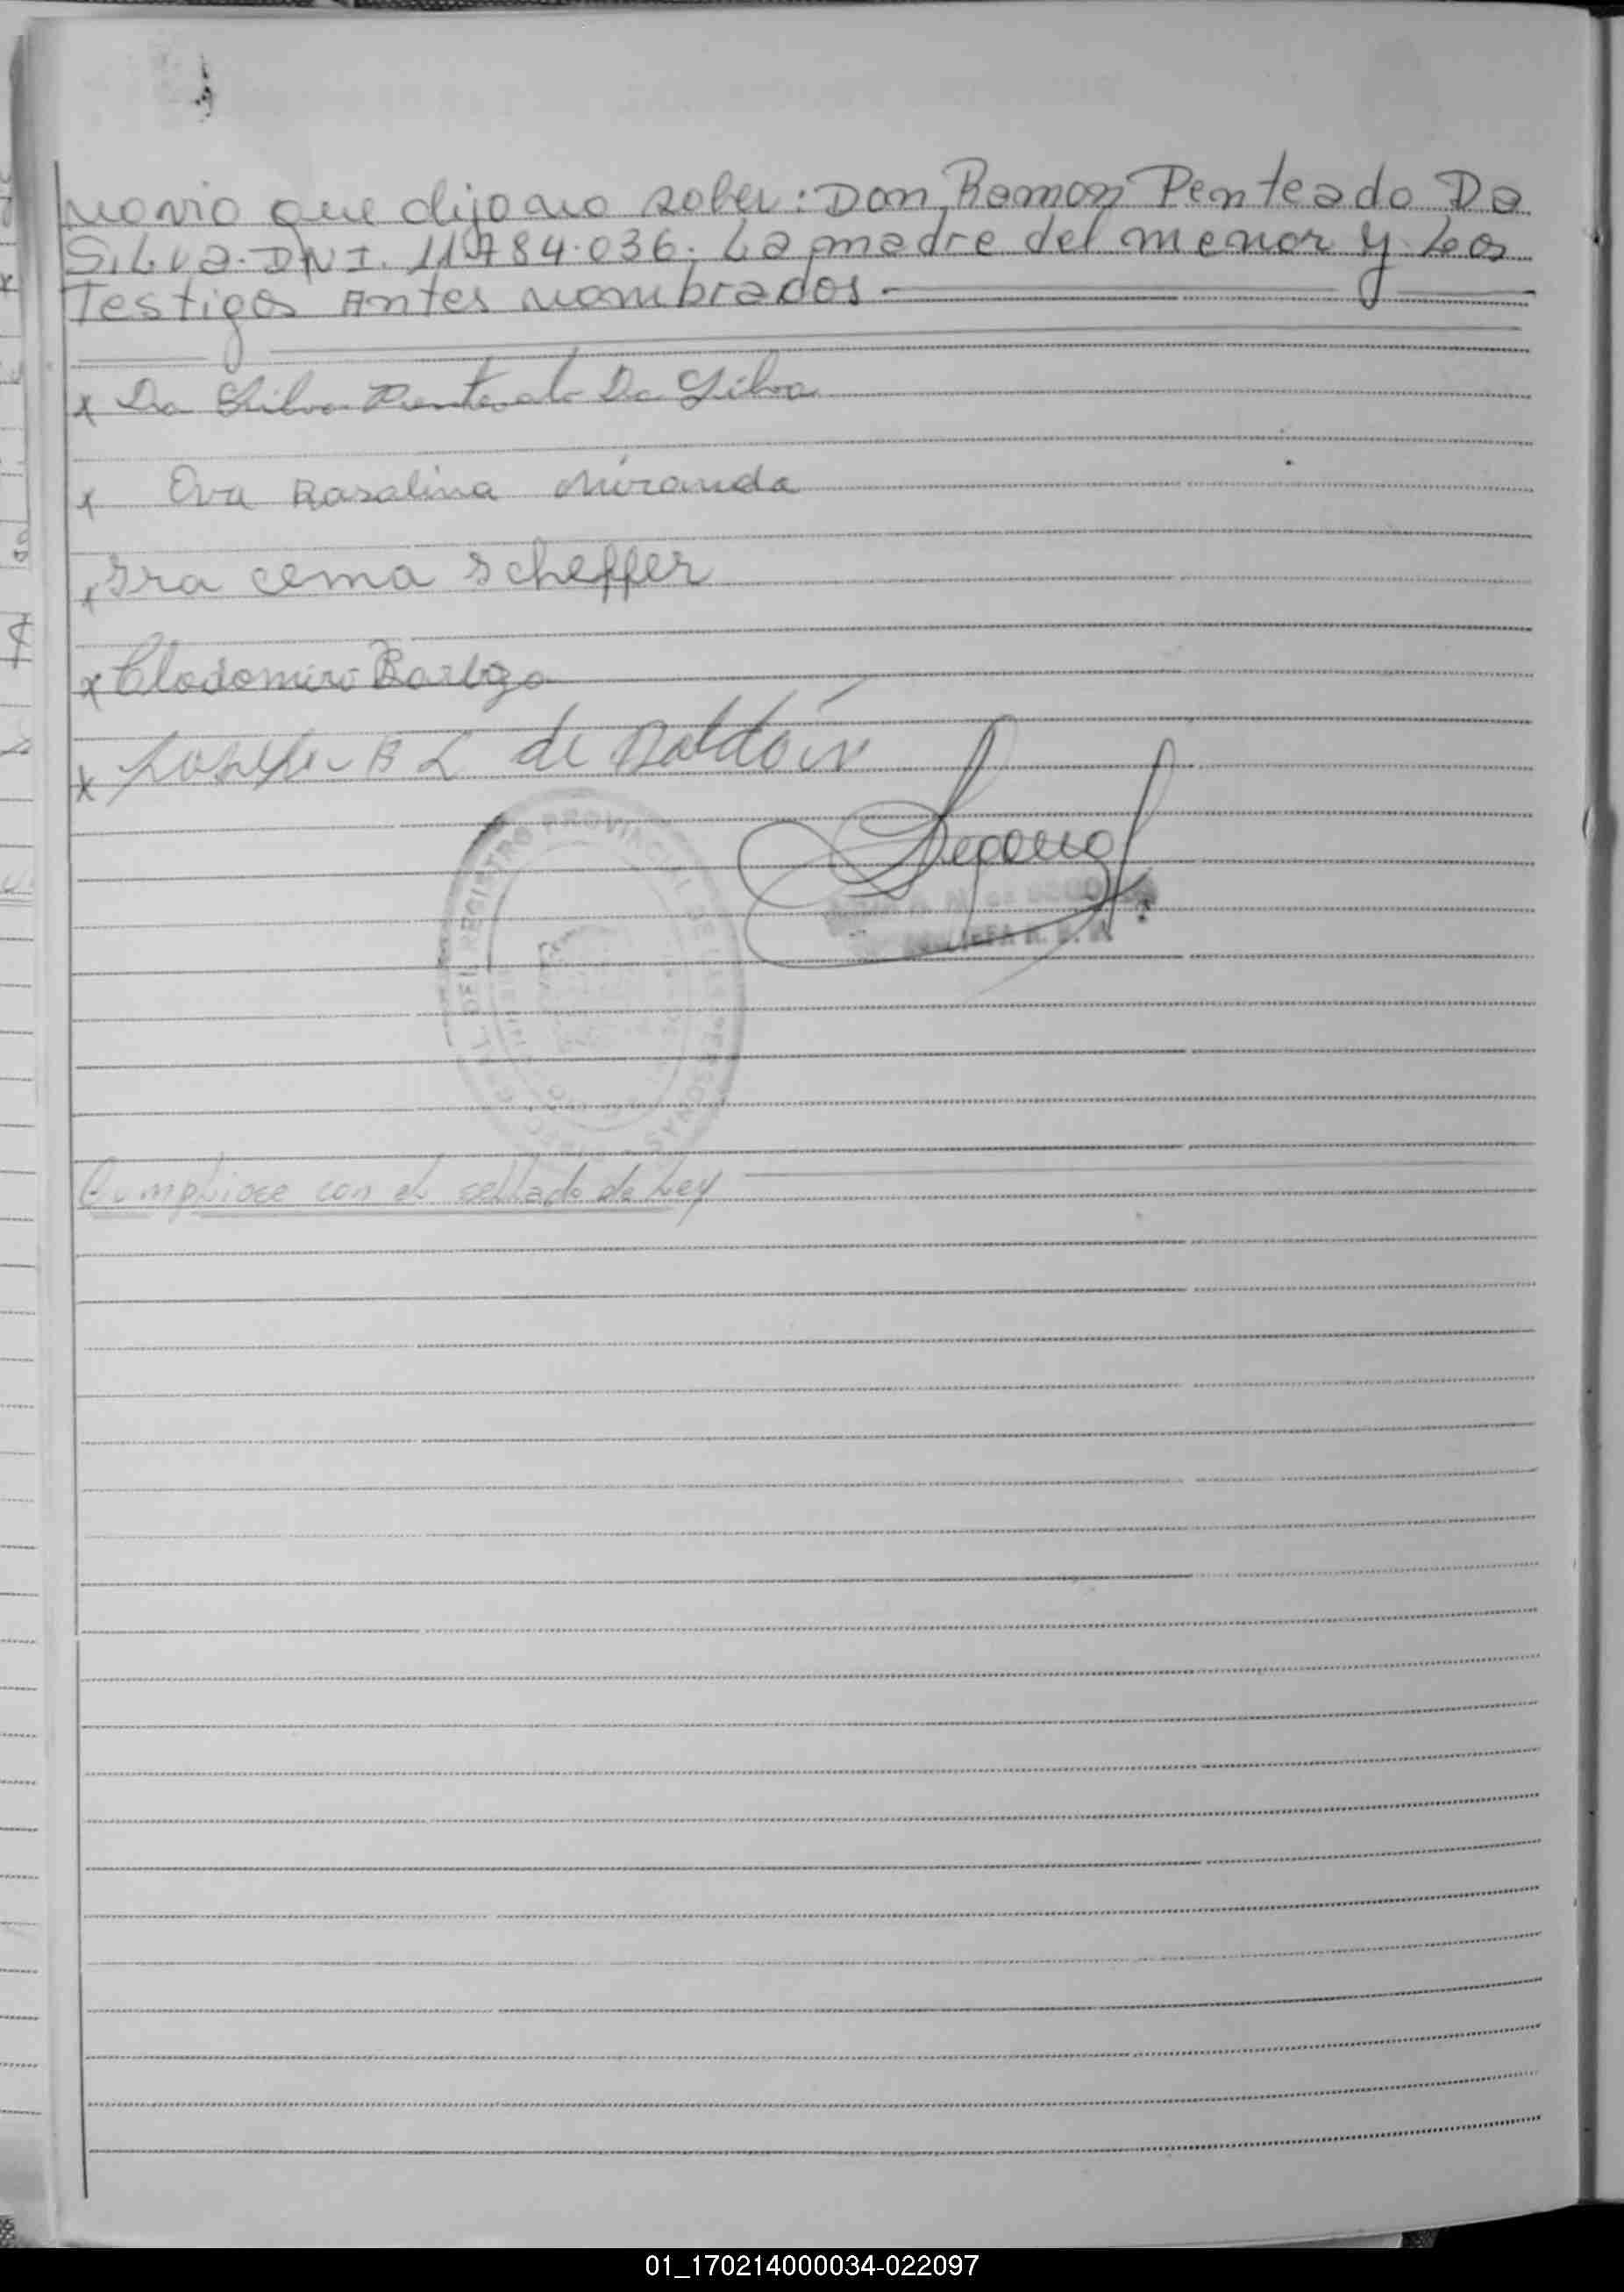 novio que dijo no saber: Don, Ramon Penteado Da
Silva. DNI. 11.784.036. La madre del menor y Los
Testigos Antes nombrados.
x Da Silva Penteado Da Silva
x Eva Rosalina Miranda
x Ira cema Scheffer
x Clodomiro Barboza
x B L de Roldán
REGISTRO PROVINCIAL DE LAS PERSONAS
Cumpliose con el sellado de Ley
01_170214000034-022097